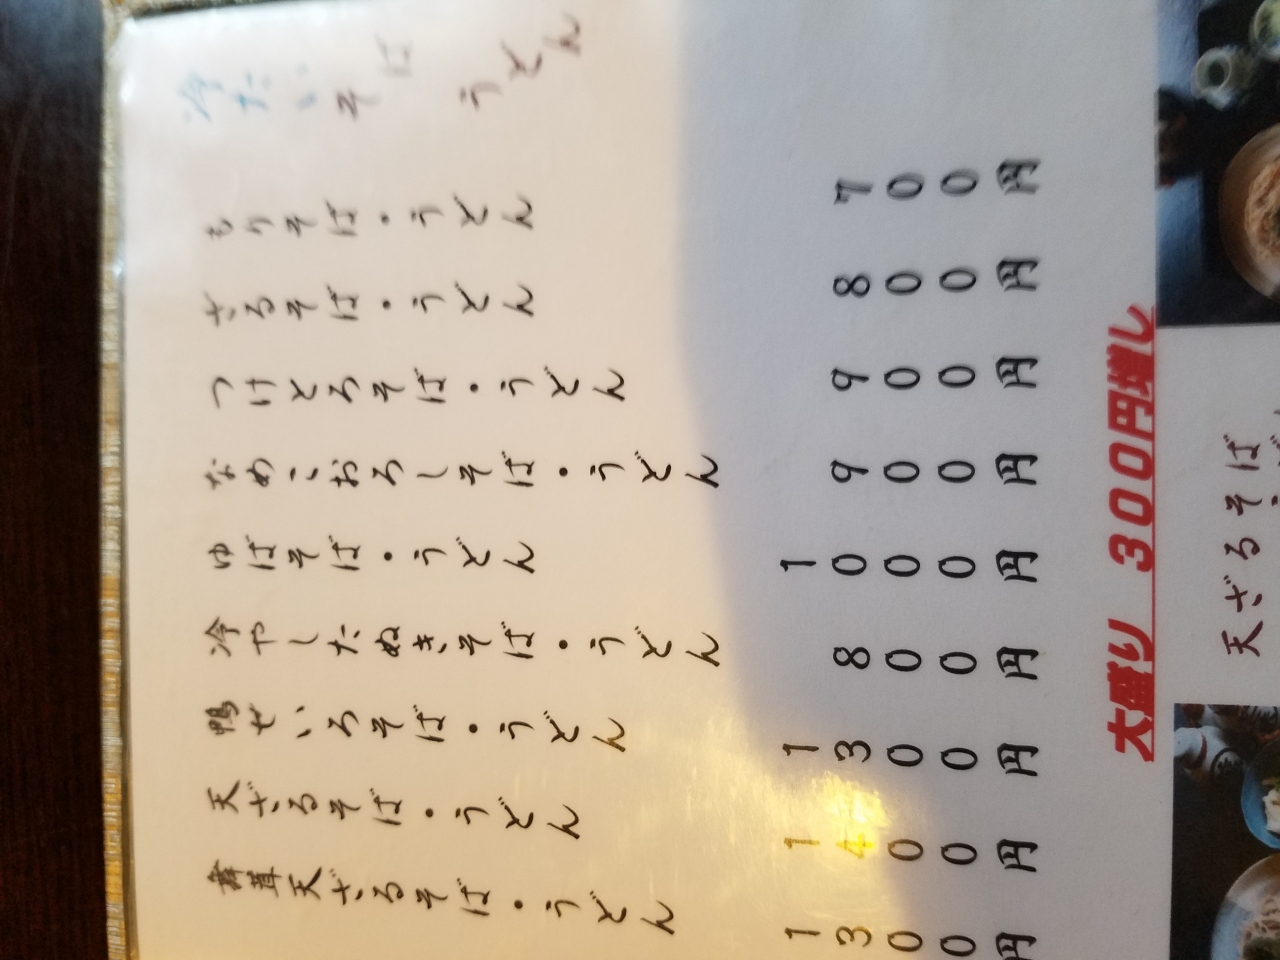 冷たい そば うどん
もりそば・うどん 700円
ざるそば・うどん 800円
つけとろそば・うどん 900円
なめこおろしそば・うどん 900円
ゆばそば・うどん 1000円
冷やしたぬきそば・うどん 800円
鴨せいろそば・うどん 1300円
天ざるそば・うどん 1400円
舞茸天ざるそば・うどん 1300円
大盛り 300円増し
天ざるそば